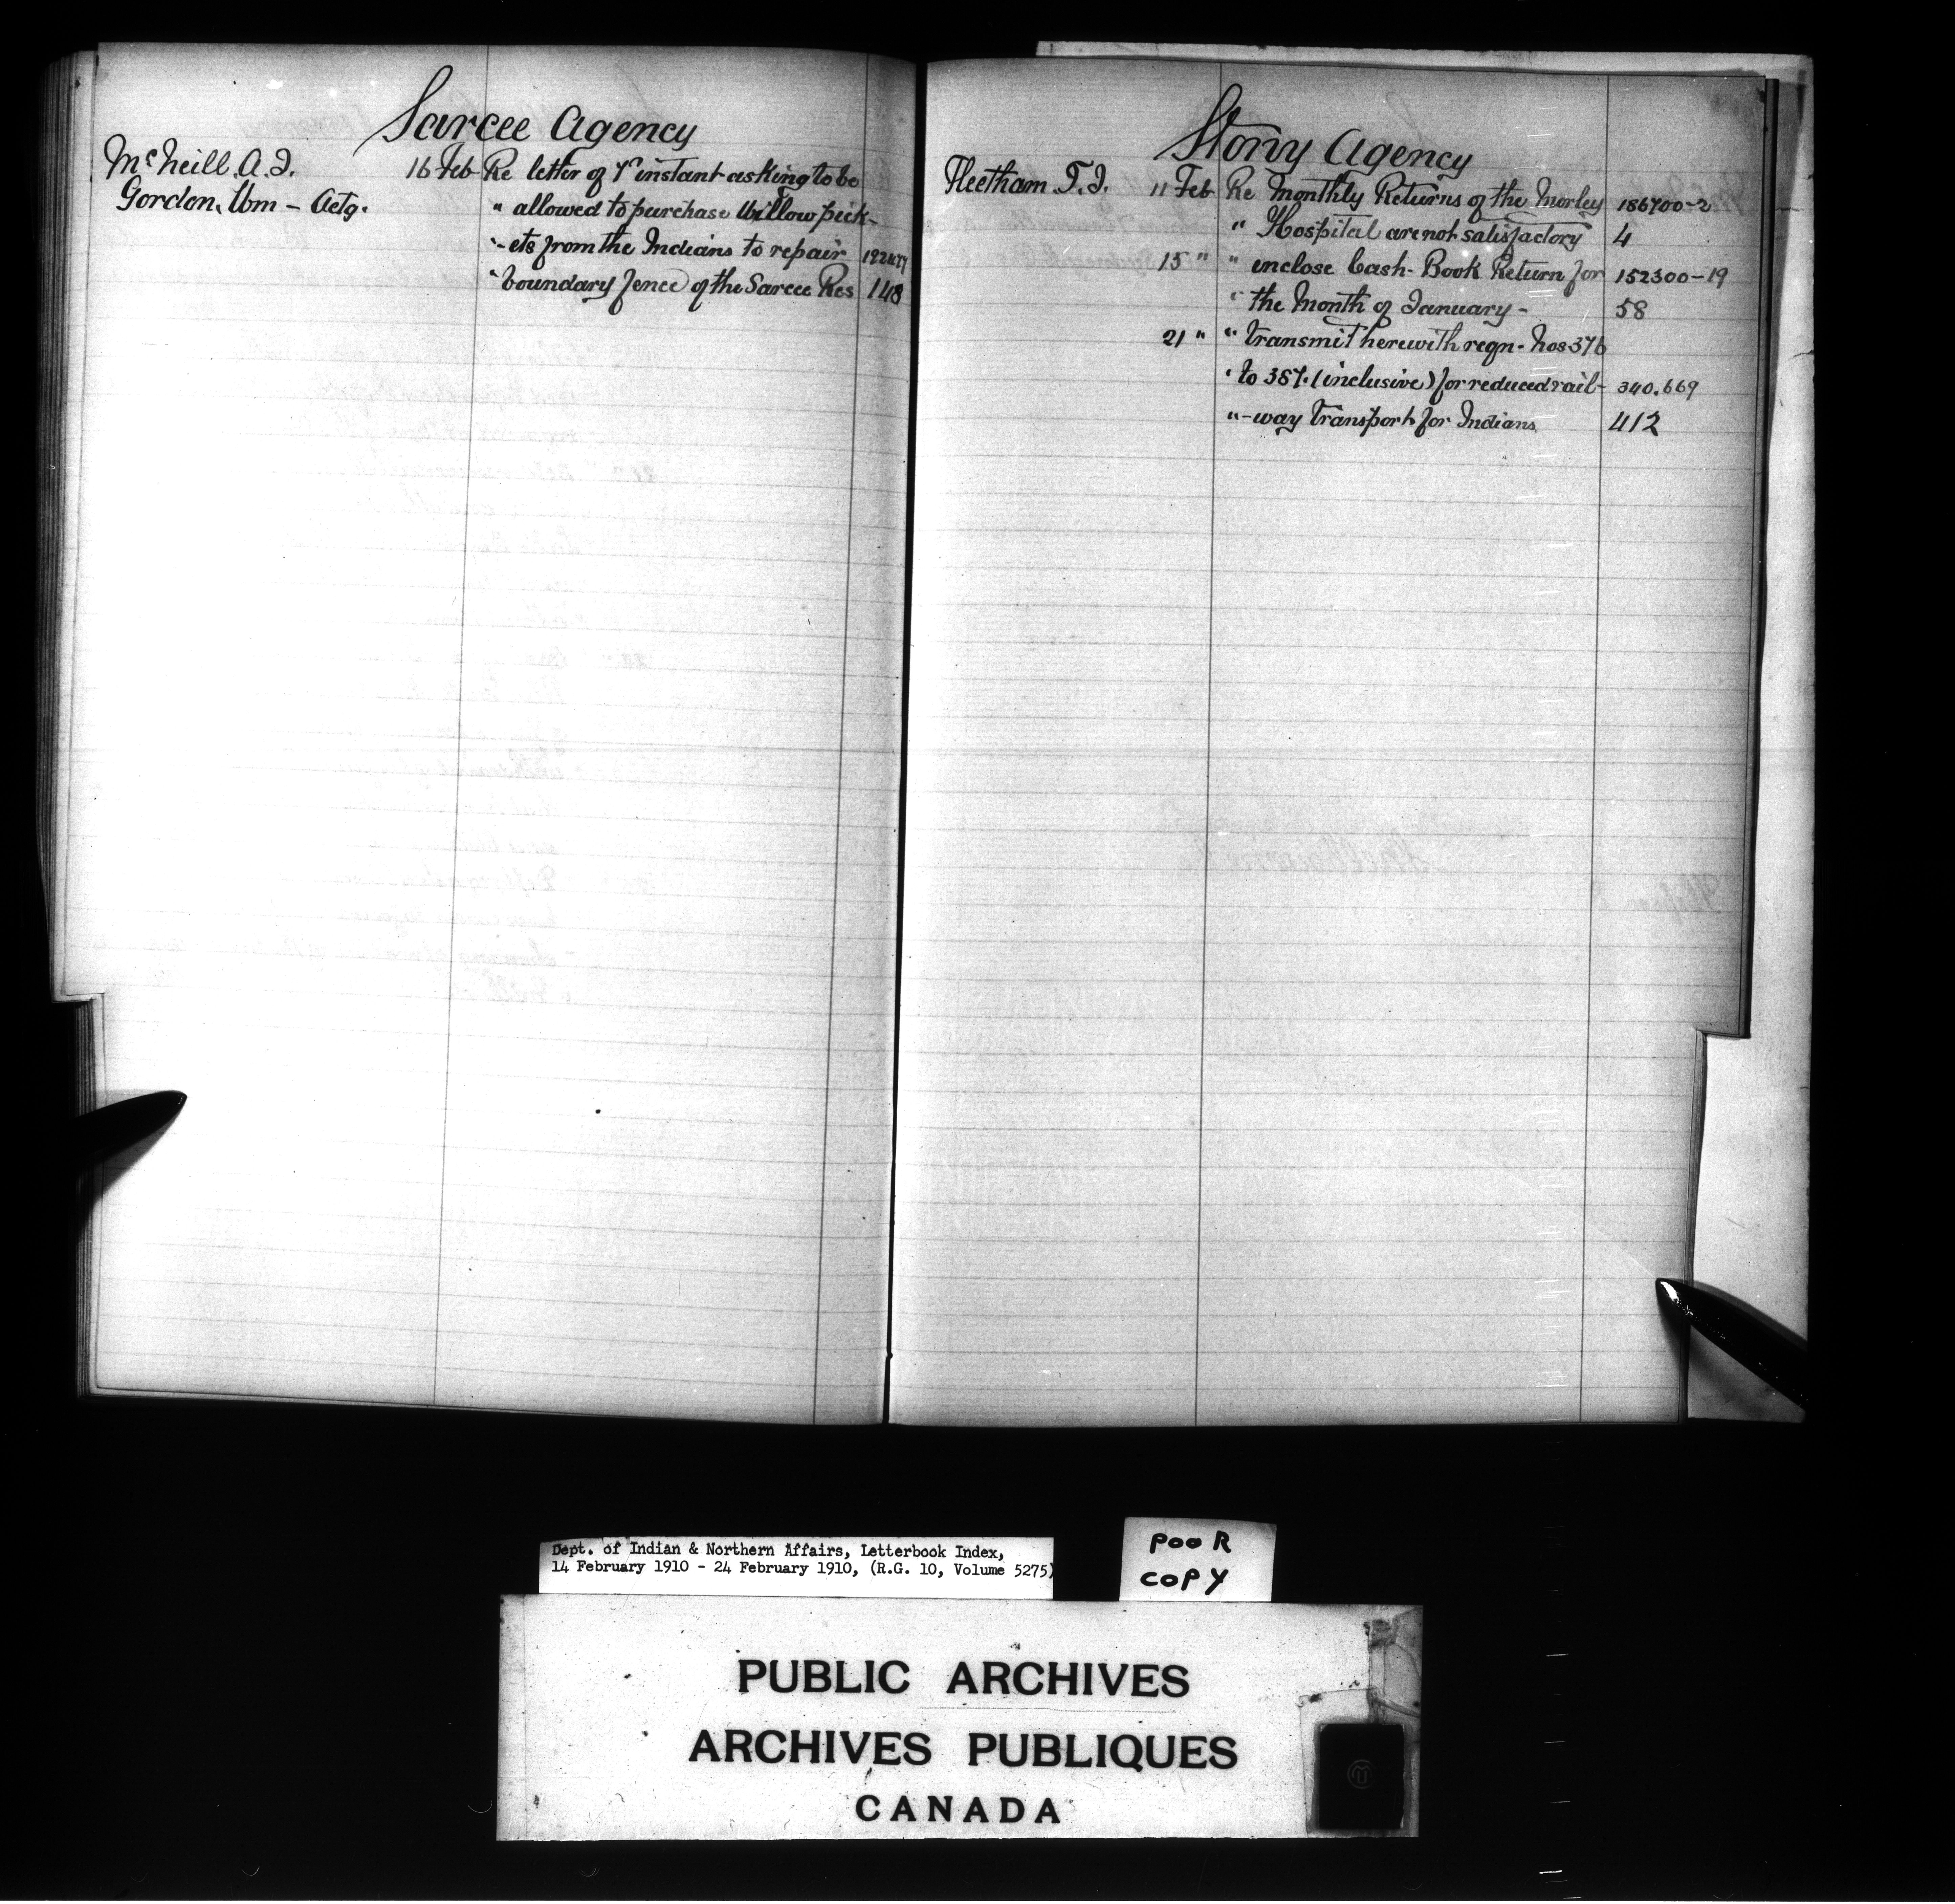 Sarcee Agency
McNeill. A. J. 16 Feb Re letter of 7th instant asking to be
Gordon, Wm - Actg. " allowed to purchase Willow pick-
"-ets from the Indians to repair
" boundary fence of the Sarcee Res 148
Stony Agency
Fleetham. T. J. 11 Feb Re Monthly Returns of the Morley 186700-2
" Hospital are not satisfactory 4
15 " " inclose Cash-Book Return for 152300-19
" the Month of January - 58
21 " " transmit herewith reqn. Nos 376
" to 387. (inclusive) for reduced rail- 340.669
"-way Transport for Indians 412
Dept. of Indian & Northern Affairs, Letterbook Index,
14 February 1910 - 24 February 1910, (R.G. 10, Volume 5275)
POOR
COPY
PUBLIC ARCHIVES
ARCHIVES PUBLIQUES
CANADA